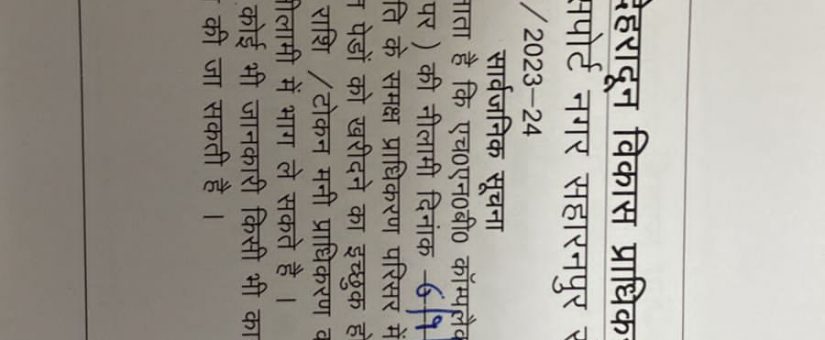 देहरादून विकास प्राधिकर
सपोर्ट नगर सहारनपुर र
/ 2023-24
सार्वजनिक सूचना
जाता है कि एच0एन0बी0 कॉम्पलैक्
पर ) की नीलामी दिनांक 6/9
ति के समक्ष प्राधिकरण परिसर में
न पेडों को खरीदने का इच्छुक हो
राशि /टोकन मनी प्राधिकरण व
नीलामी में भाग ले सकते है ।
कोई भी जानकारी किसी भी का
की जा सकती है ।